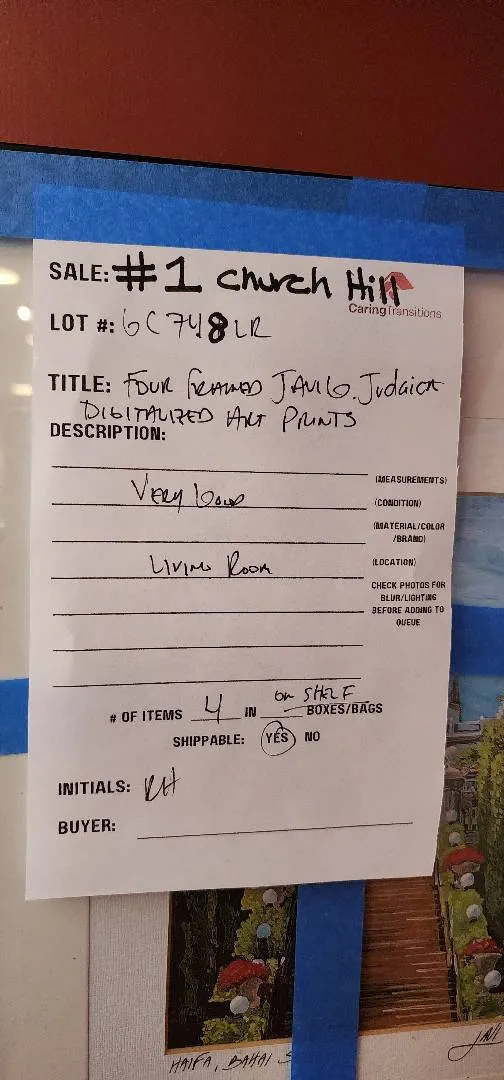 SALE: #1 Church Hill
CaringTransitions
LOT #: 6C748LR
TITLE: FOUR FRAMED JAVIG. JUDAICA
DIGITALIZED ART PRINTS
DESCRIPTION:
(MEASUREMENTS)
VERY GOOD (CONDITION)
(MATERIAL/COLOR
/BRAND)
LIVING ROOM (LOCATION)
CHECK PHOTOS FOR
BLUR/LIGHTING
BEFORE ADDING TO
QUEUE
# OF ITEMS 4 IN on SHELF BOXES/BAGS
SHIPPABLE: YES NO
INITIALS: RH
BUYER:
HAIFA, BAHAI